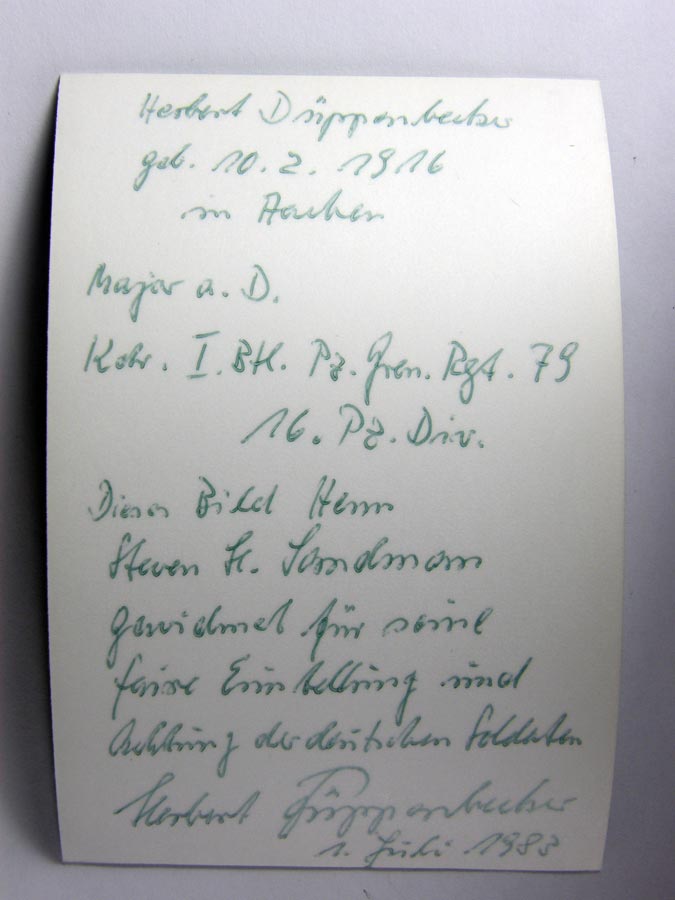 Herbert Düppenbecker
geb. 10. 2. 1916
in Aachen
Major a. D.
Kdr. I. Btl. Pz. Gren. Rgt. 79
16. Pz. Div.
Dieses Bild Herrn
Steven H. Sandmann
gewidmet für seine
faire Einstellung und
Achtung der deutschen Soldaten
Herbert Düppenbecker
1. Juli 1983